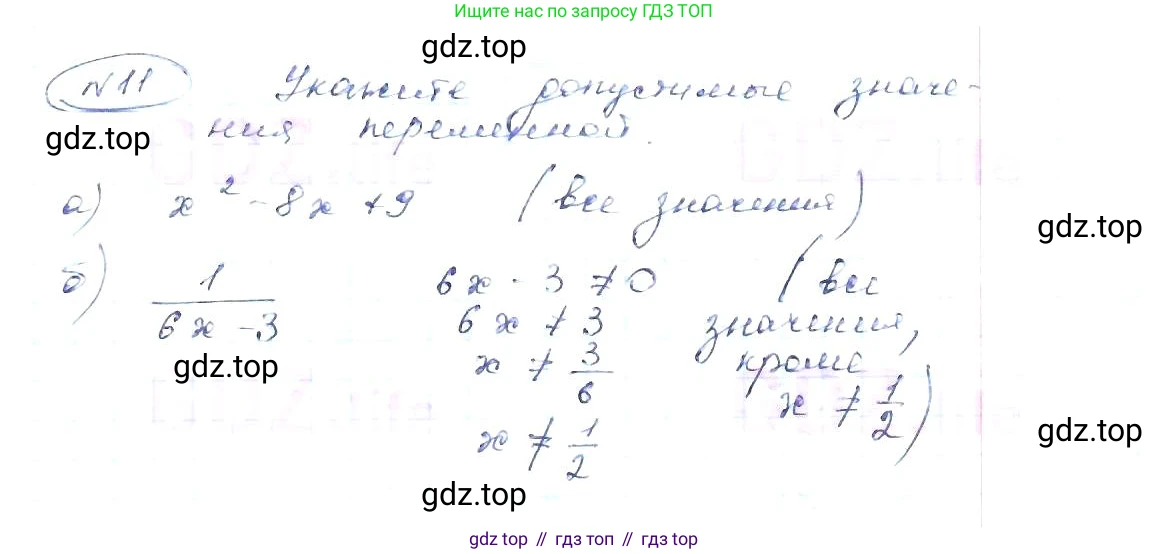 Ищите нас по запросу ГДЗ ТОП
gdz.top
№ 11 Укажите допустимые значе-
gdz.top
ния переменной.
а) x² - 8x + 9 (все значения)
gdz.top
б) 1/(6x - 3) 6x - 3 ≠ 0 (все
6x ≠ 3 значения,
gdz.top
x ≠ 3/6 кроме
x ≠ 1/2)
gdz.top
x ≠ 1/2
gdz.top
gdz top // гдз топ // гдз top